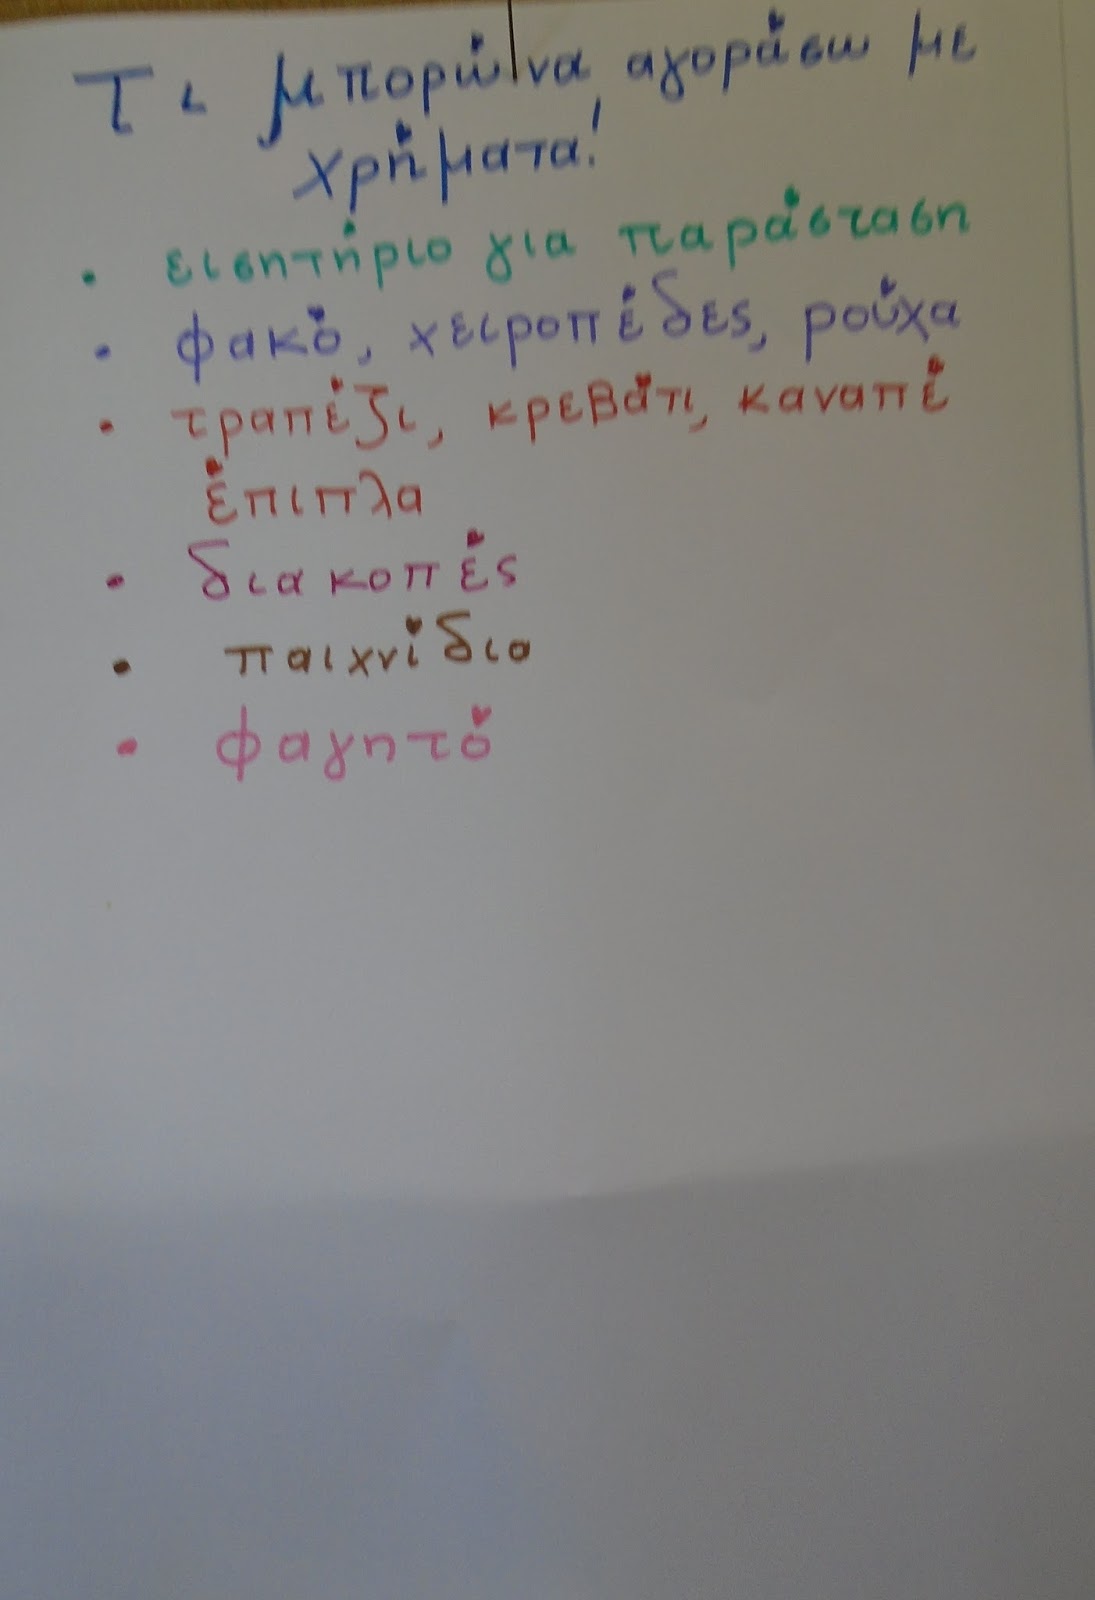 Τι μπορώ να αγοράσω με
χρήματα!
• εισητήριο για παράσταση
• φακό, χειροπέδες, ρούχα
• τραπέζι, κρεβάτι, καναπέ
έπιπλα
• διακοπές
• παιχνίδια
• φαγητό